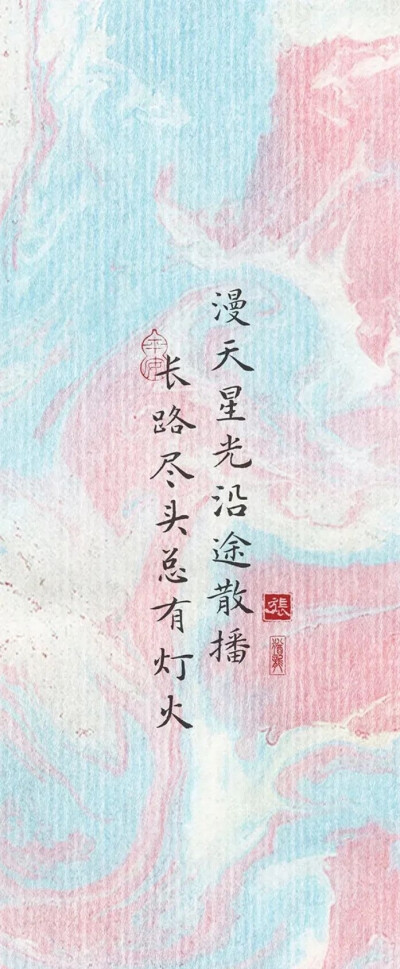 漫天星光沿途散播
长路尽头总有灯火
張